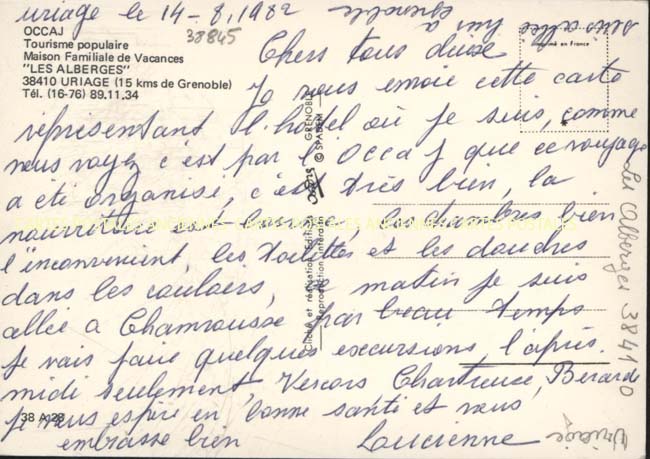 uriage le 14-8, 1982
38845
OCCAJ
Tourisme populaire
Maison Familiale de Vacances
"LES ALBERGES"
38410 URIAGE (15 kms de Grenoble)
Tél. (16-76) 89.11.34
Imprimé en France
Chers tous deux
Je vous envoie cette carte
représentant l'hotel où je suis, comme
vous voyez c'est par l'Occaj que ce voyage
a été organisé, c'est très bien, la
nourriture est bonne, les chambres bien
l'inconvenient, les toilettes et les douches
dans les couloirs, le matin je suis
allée a Chamrousse par beau temps
je vais faire quelques excursions, l'après
midi seulement Vercors Chartreuse,
je vous espère en bonne santé et vous
embrasse bien
Lucienne
38 A 28
CARTES POSTALES ANCIENNES CARTES POSTALES ANCIENNES CARTES POSTALES
Cliché et réalisation Edition GRENOBLE
Reproduction interdite © SPADEM
Les Alberges 38410
Uriage
suis allée à Grenoble